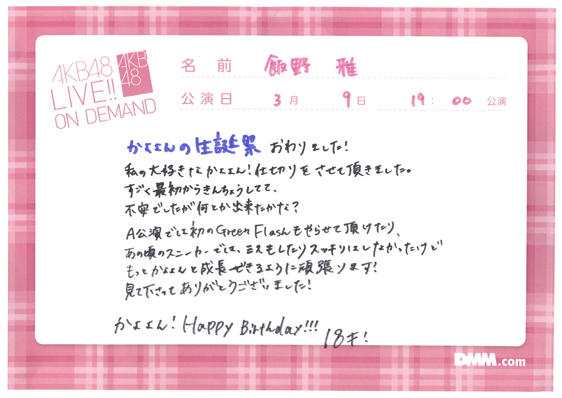 AKB48
LIVE!!
ON DEMAND
AKB
48
名前 飯野 雅
公演日 3月 9日 19:00 公演
かよよんの生誕祭 おわりました!
私の大好きなかよよん!仕切りをさせて頂きました。
すごく最初からきんちょうしてて、
不安でしたが何とか出来たかな?
A公演でして初のGreen Flashもやらせて頂けたり、
あの頃のスニーカーでは、ミスもしたりスッキリはしなかったけど
もっとかよよんと成長できるように頑張ります!
見て下さってありがとうございました!
かよよん! Happy Birthday!!! 18才!
DMM.com